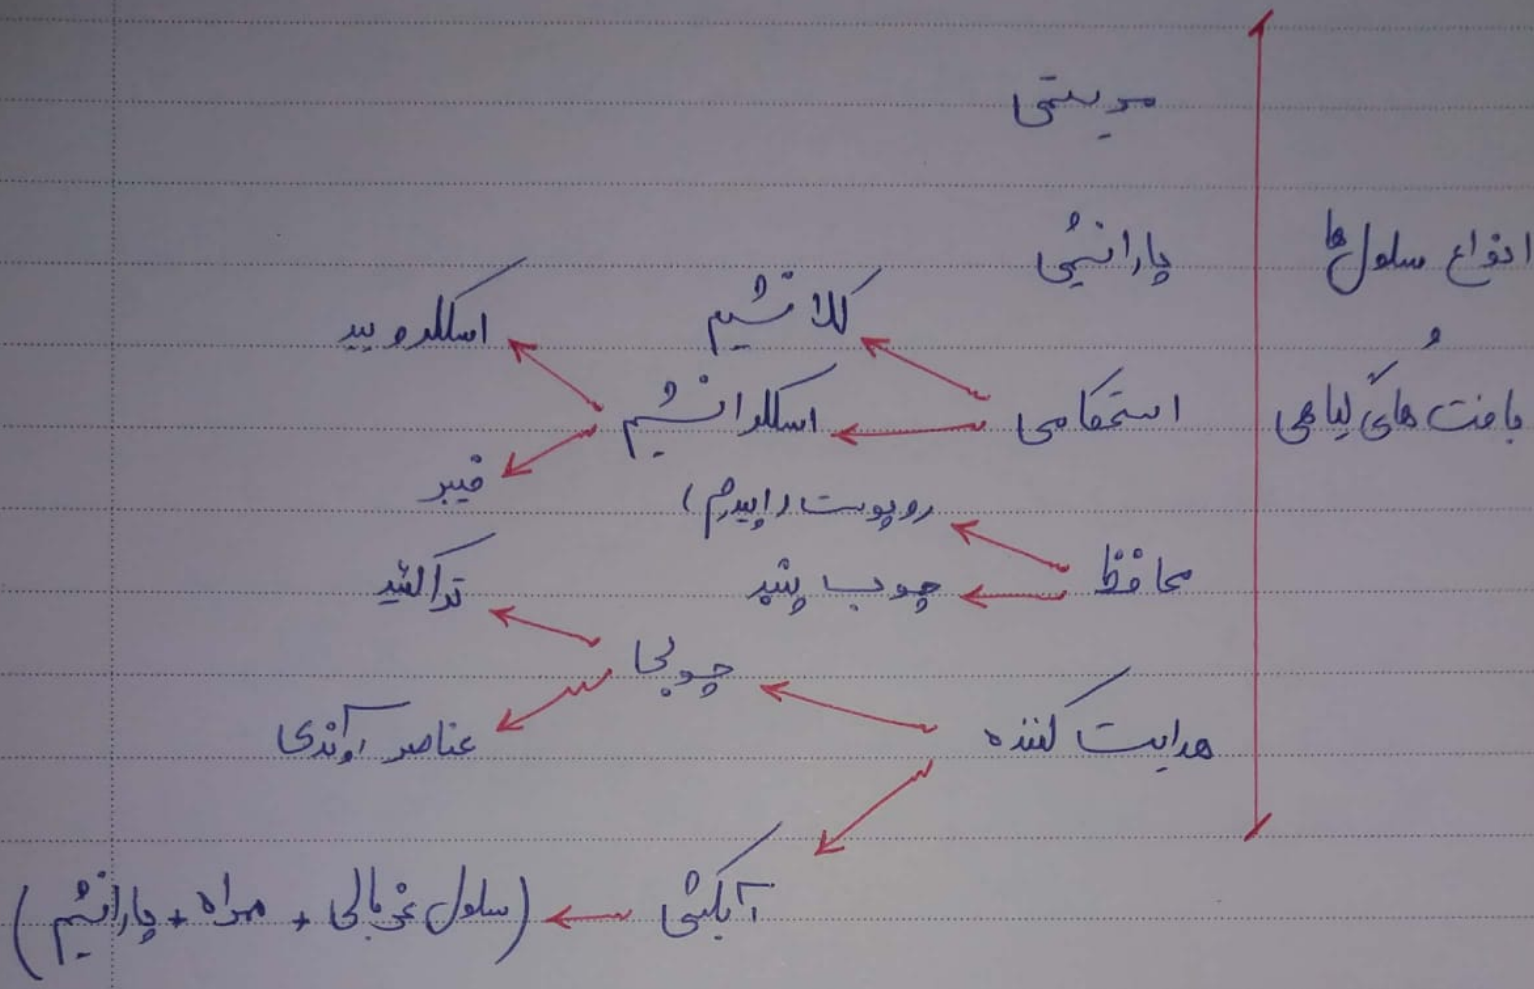 انواع سلول ها
و
بافت های گیاهی
مریستمی
پارانشیمی
استحکامی
کلانشیم
اسکلرانشیم
اسکلروئید
فیبر
محافظ
روپوست (اپیدرم)
چوب پنبه
هدایت کننده
چوبی
تراکئید
عناصر آوندی
آبکشی
(سلول غربالی + همراه + پارانشیم)